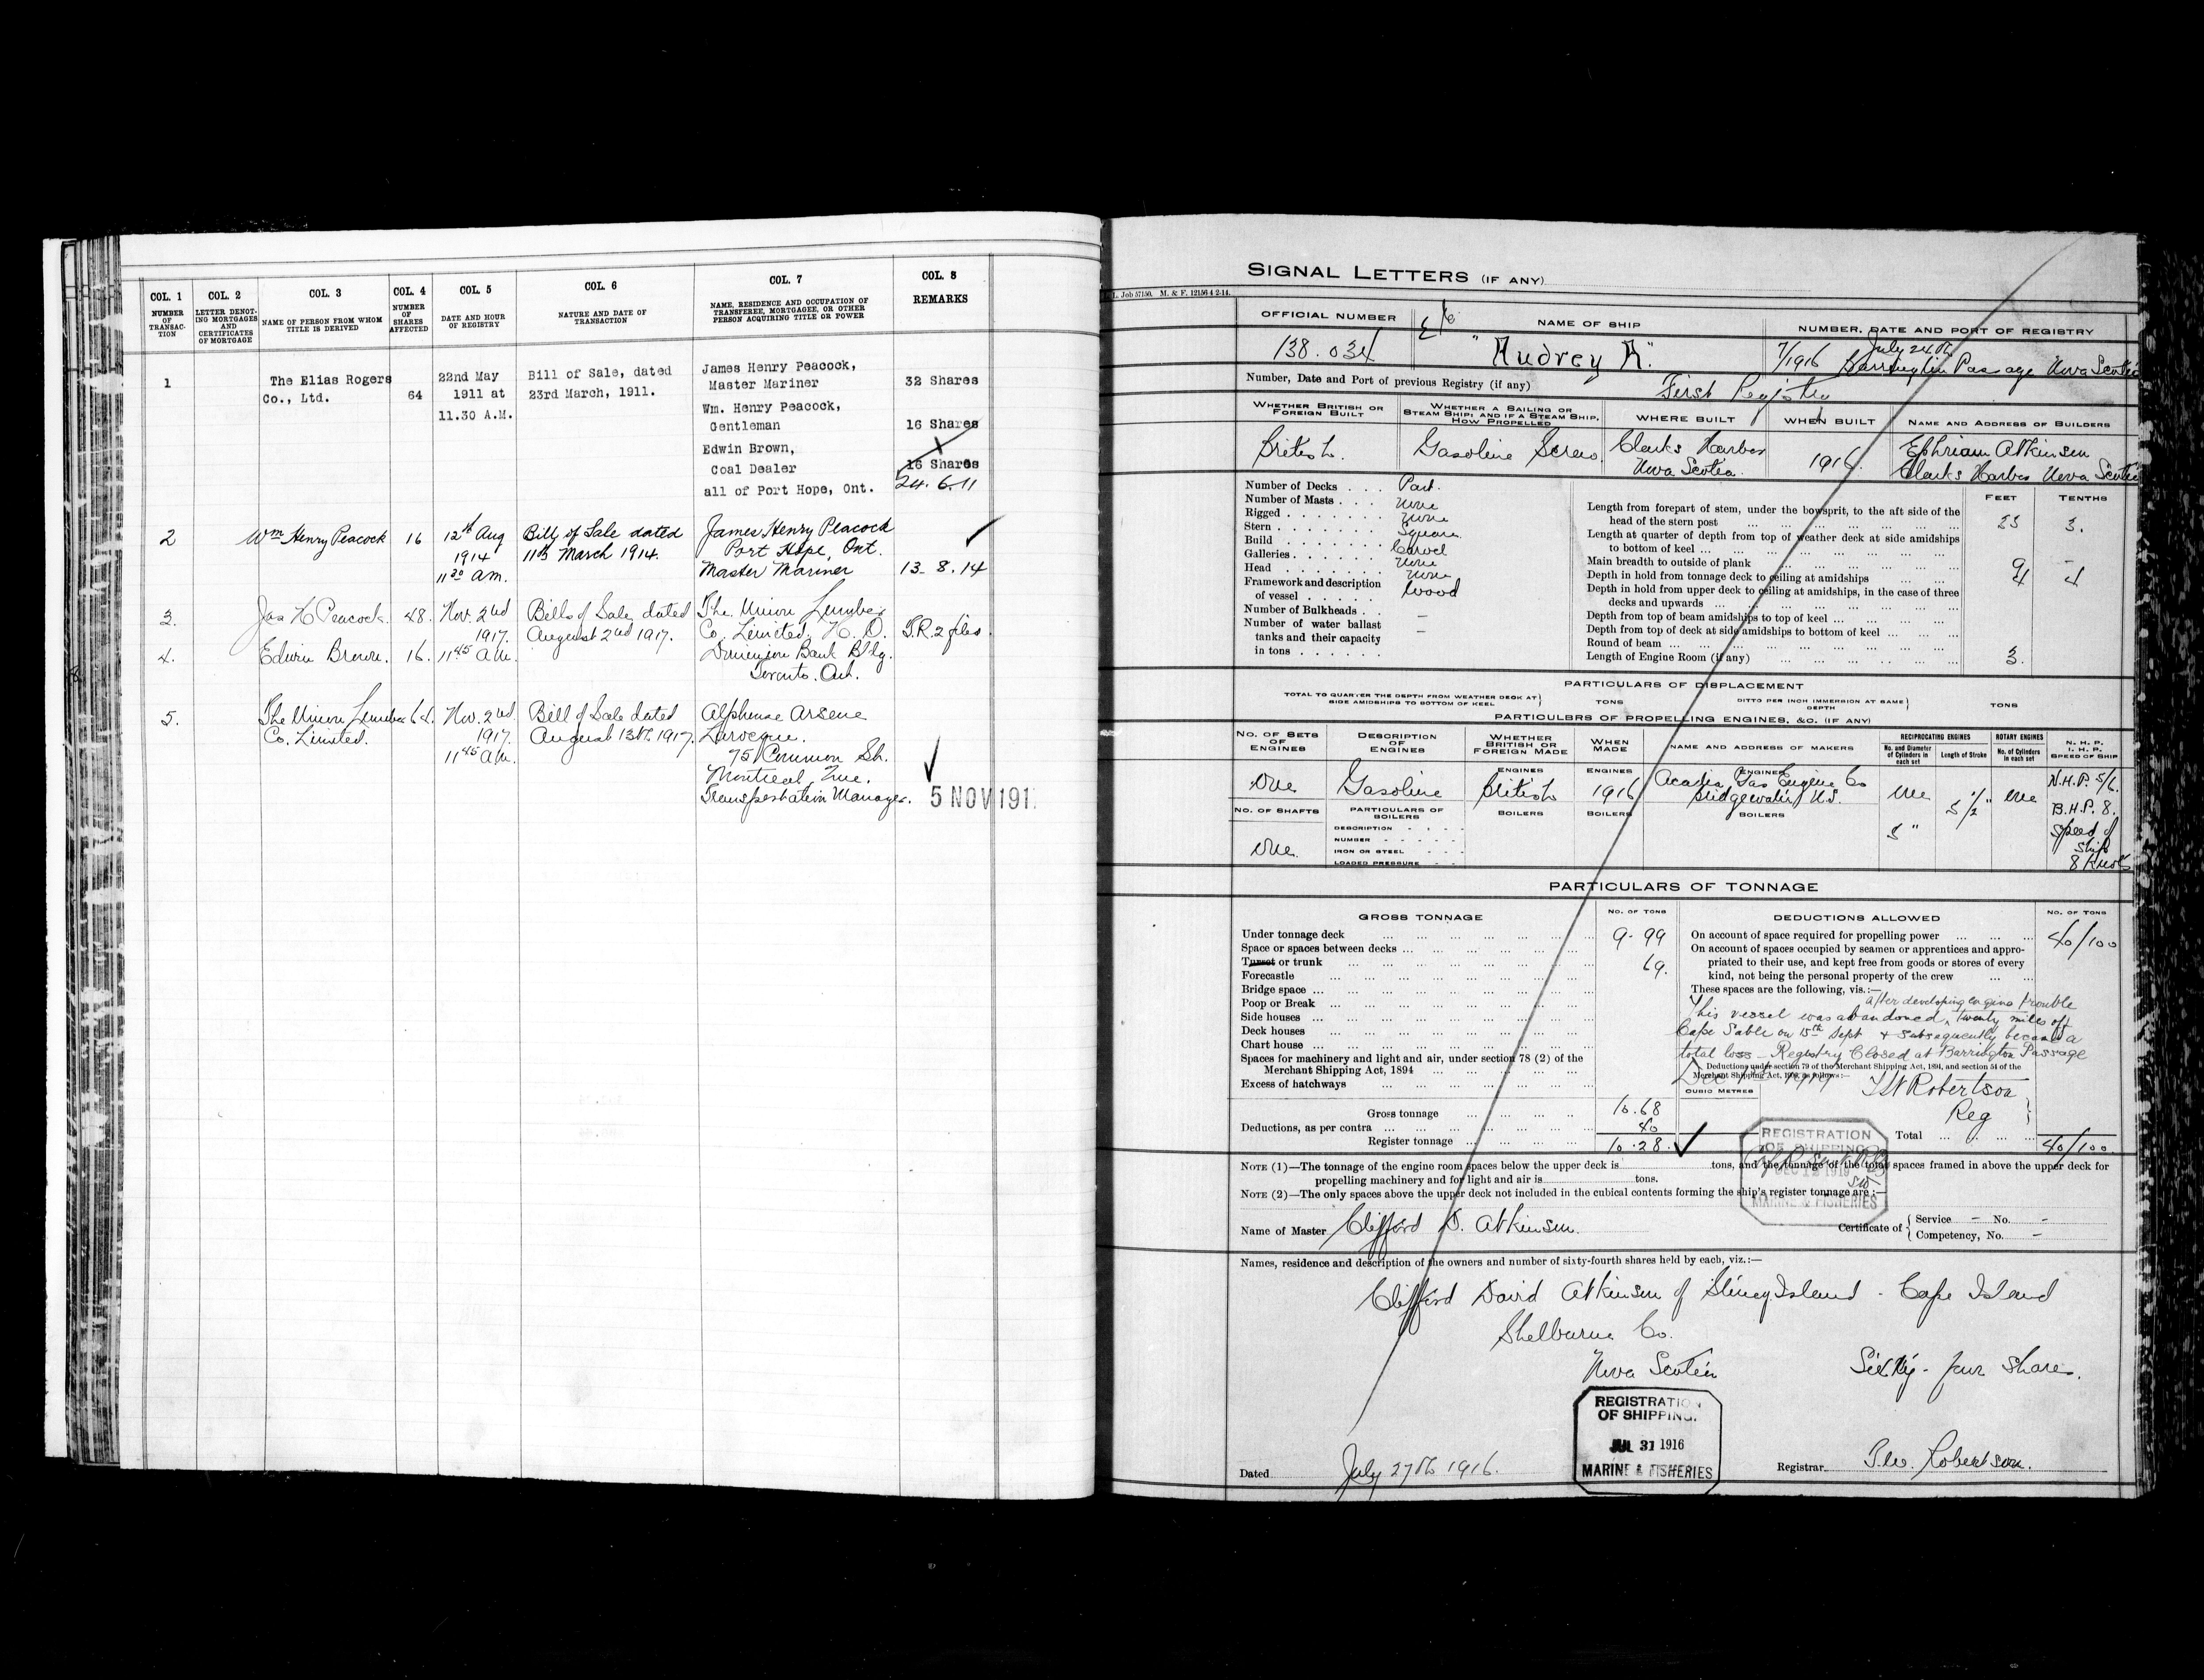 COL. 1 COL. 2 COL. 3 COL. 4 COL. 5 COL. 6 COL. 7 COL. 8
NUMBER OF TRANSAC- TION
LETTER DENOT- ING MORTGAGES AND CERTIFICATES OF MORTGAGE
NAME OF PERSON FROM WHOM TITLE IS DERIVED
NUMBER OF SHARES AFFECTED
DATE AND HOUR OF REGISTRY
NATURE AND DATE OF TRANSACTION
NAME, RESIDENCE AND OCCUPATION OF TRANSFEREE, MORTGAGEE, OR OTHER PERSON ACQUIRING TITLE OR POWER
REMARKS
1 The Elias Rogers Co., Ltd. 64
22nd May 1911 at 11.30 A.M.
Bill of Sale, dated 23rd March, 1911.
James Henry Peacock,
Master Mariner 32 Shares
Wm. Henry Peacock,
Gentleman 16 Shares
Edwin Brown,
Coal Dealer 16 Shares
all of Port Hope, Ont. 24.6.11
2 Wm Henry Peacock 16 12th Aug Bill of Sale dated James Henry Peacock
1914 11th March 1914. Port Hope, Ont.
11 30 am. Master Mariner 13-8.14
3. Jas H Peacock. 48. Nov. 2nd Bills of Sale dated The Union Lumber
1917. August 2nd 1917. Co. Limited. H. O. S.R. 2 files.
4. Edwin Brown. 16. 11 45 am. Dominion Bank Bldg.
Toronto. Ont.
5. The Union Lumber 64. Nov. 2nd Bill of Sale dated Alphonse Arsene
Co. Limited. 1917. August 13th 1917. Larocque.
11 45 am. 75 Common St.
Montreal, Que.
Transportation Manager. 5 NOV 191
SIGNAL LETTERS (IF ANY)
Job 57150. M. & F. 12156 4 2-14.
OFFICIAL NUMBER NAME OF SHIP NUMBER, DATE AND PORT OF REGISTRY
138.034 "Audrey A." 7/1916 July 24th Barrington Passage Nova Scotia
Number, Date and Port of previous Registry (if any) First Registry
WHETHER BRITISH OR FOREIGN BUILT
WHETHER A SAILING OR STEAM SHIP; AND IF A STEAM SHIP, HOW PROPELLED
WHERE BUILT WHEN BUILT NAME AND ADDRESS OF BUILDERS
British Gasoline Screw Clarks Harbor Nova Scotia 1916 Ephriam Atkinson
Clarks Harbor Nova Scotia
Number of Decks Part.
Number of Masts None
Rigged None
Stern Square
Build Carvel
Galleries None
Head None
Framework and description of vessel Wood
Number of Bulkheads –
Number of water ballast tanks and their capacity in tons –
FEET TENTHS
Length from forepart of stem, under the bowsprit, to the aft side of the head of the stern post 3.
Length at quarter of depth from top of weather deck at side amidships to bottom of keel
Main breadth to outside of plank 9 –
Depth in hold from tonnage deck to ceiling at amidships 4 4
Depth in hold from upper deck to ceiling at amidships, in the case of three decks and upwards
Depth from top of beam amidships to top of keel
Depth from top of deck at side amidships to bottom of keel
Round of beam
Length of Engine Room (if any) 3.
PARTICULARS OF DISPLACEMENT
TOTAL TO QUARTER THE DEPTH FROM WEATHER DECK AT SIDE AMIDSHIPS TO BOTTOM OF KEEL TONS DITTO PER INCH IMMERSION AT SAME DEPTH TONS
PARTICULBRS OF PROPELLING ENGINES, &C. (IF ANY)
NO. OF SETS OF ENGINES
DESCRIPTION OF ENGINES
WHETHER BRITISH OR FOREIGN MADE
WHEN MADE
NAME AND ADDRESS OF MAKERS
RECIPROCATING ENGINES
No. and Diameter of Cylinders in each set
Length of Stroke
ROTARY ENGINES
No. of Cylinders in each set
N. H. P. I. H. P. SPEED OF SHIP
ENGINES ENGINES ENGINES
One Gasoline British 1916 Acadia Gas Engine Co
Bridgewater N.S. One 5 1/2" One
N.H.P. 5/6.
B.H.P. 8.
Speed of ship
8 Knots
NO. OF SHAFTS PARTICULARS OF BOILERS BOILERS BOILERS BOILERS
5"
One
DESCRIPTION
NUMBER
IRON OR STEEL
LOADED PRESSURE
PARTICULARS OF TONNAGE
GROSS TONNAGE NO. OF TONS DEDUCTIONS ALLOWED NO. OF TONS
Under tonnage deck 9.99
Space or spaces between decks
Turret or trunk 69.
Forecastle
Bridge space
Poop or Break
Side houses
Deck houses
Chart house
Spaces for machinery and light and air, under section 78 (2) of the Merchant Shipping Act, 1894
Excess of hatchways
Gross tonnage 10.68
Deductions, as per contra 40
Register tonnage 10.28.
On account of space required for propelling power 40/100
On account of spaces occupied by seamen or apprentices and appro-
priated to their use, and kept free from goods or stores of every
kind, not being the personal property of the crew
These spaces are the following, vis.:—
after developing engine trouble
This vessel was abandoned, twenty miles off
Cape Sable on 15th Sept & subsequently became a
total loss – Registry Closed at Barrington Passage
Deductions under section 79 of the Merchant Shipping Act, 1894, and section 54 of the
Merchant Shipping Act, 1906, as follows:—
CUBIC METRES
T W Robertson
Reg
Total 40/100.
REGISTRATION
OF SHIPPING
DEC 12 1919
MARINE & FISHERIES
NOTE (1)—The tonnage of the engine room spaces below the upper deck is tons, and the tonnage of the total spaces framed in above the upper deck for
propelling machinery and for light and air is tons.
NOTE (2)—The only spaces above the upper deck not included in the cubical contents forming the ship's register tonnage are:—
Name of Master Clifford D. Atkinson. Certificate of Service – No. –
Competency, No. –
Names, residence and description of the owners and number of sixty-fourth shares held by each, viz.:—
Clifford David Atkinson of Stoney Island - Cape Island
Shelburne Co.
Nova Scotia Sixty-four Share.
REGISTRATION
OF SHIPPING.
JUL 31 1916
MARINE & FISHERIES
Dated July 27th 1916. Registrar T.W. Robertson.